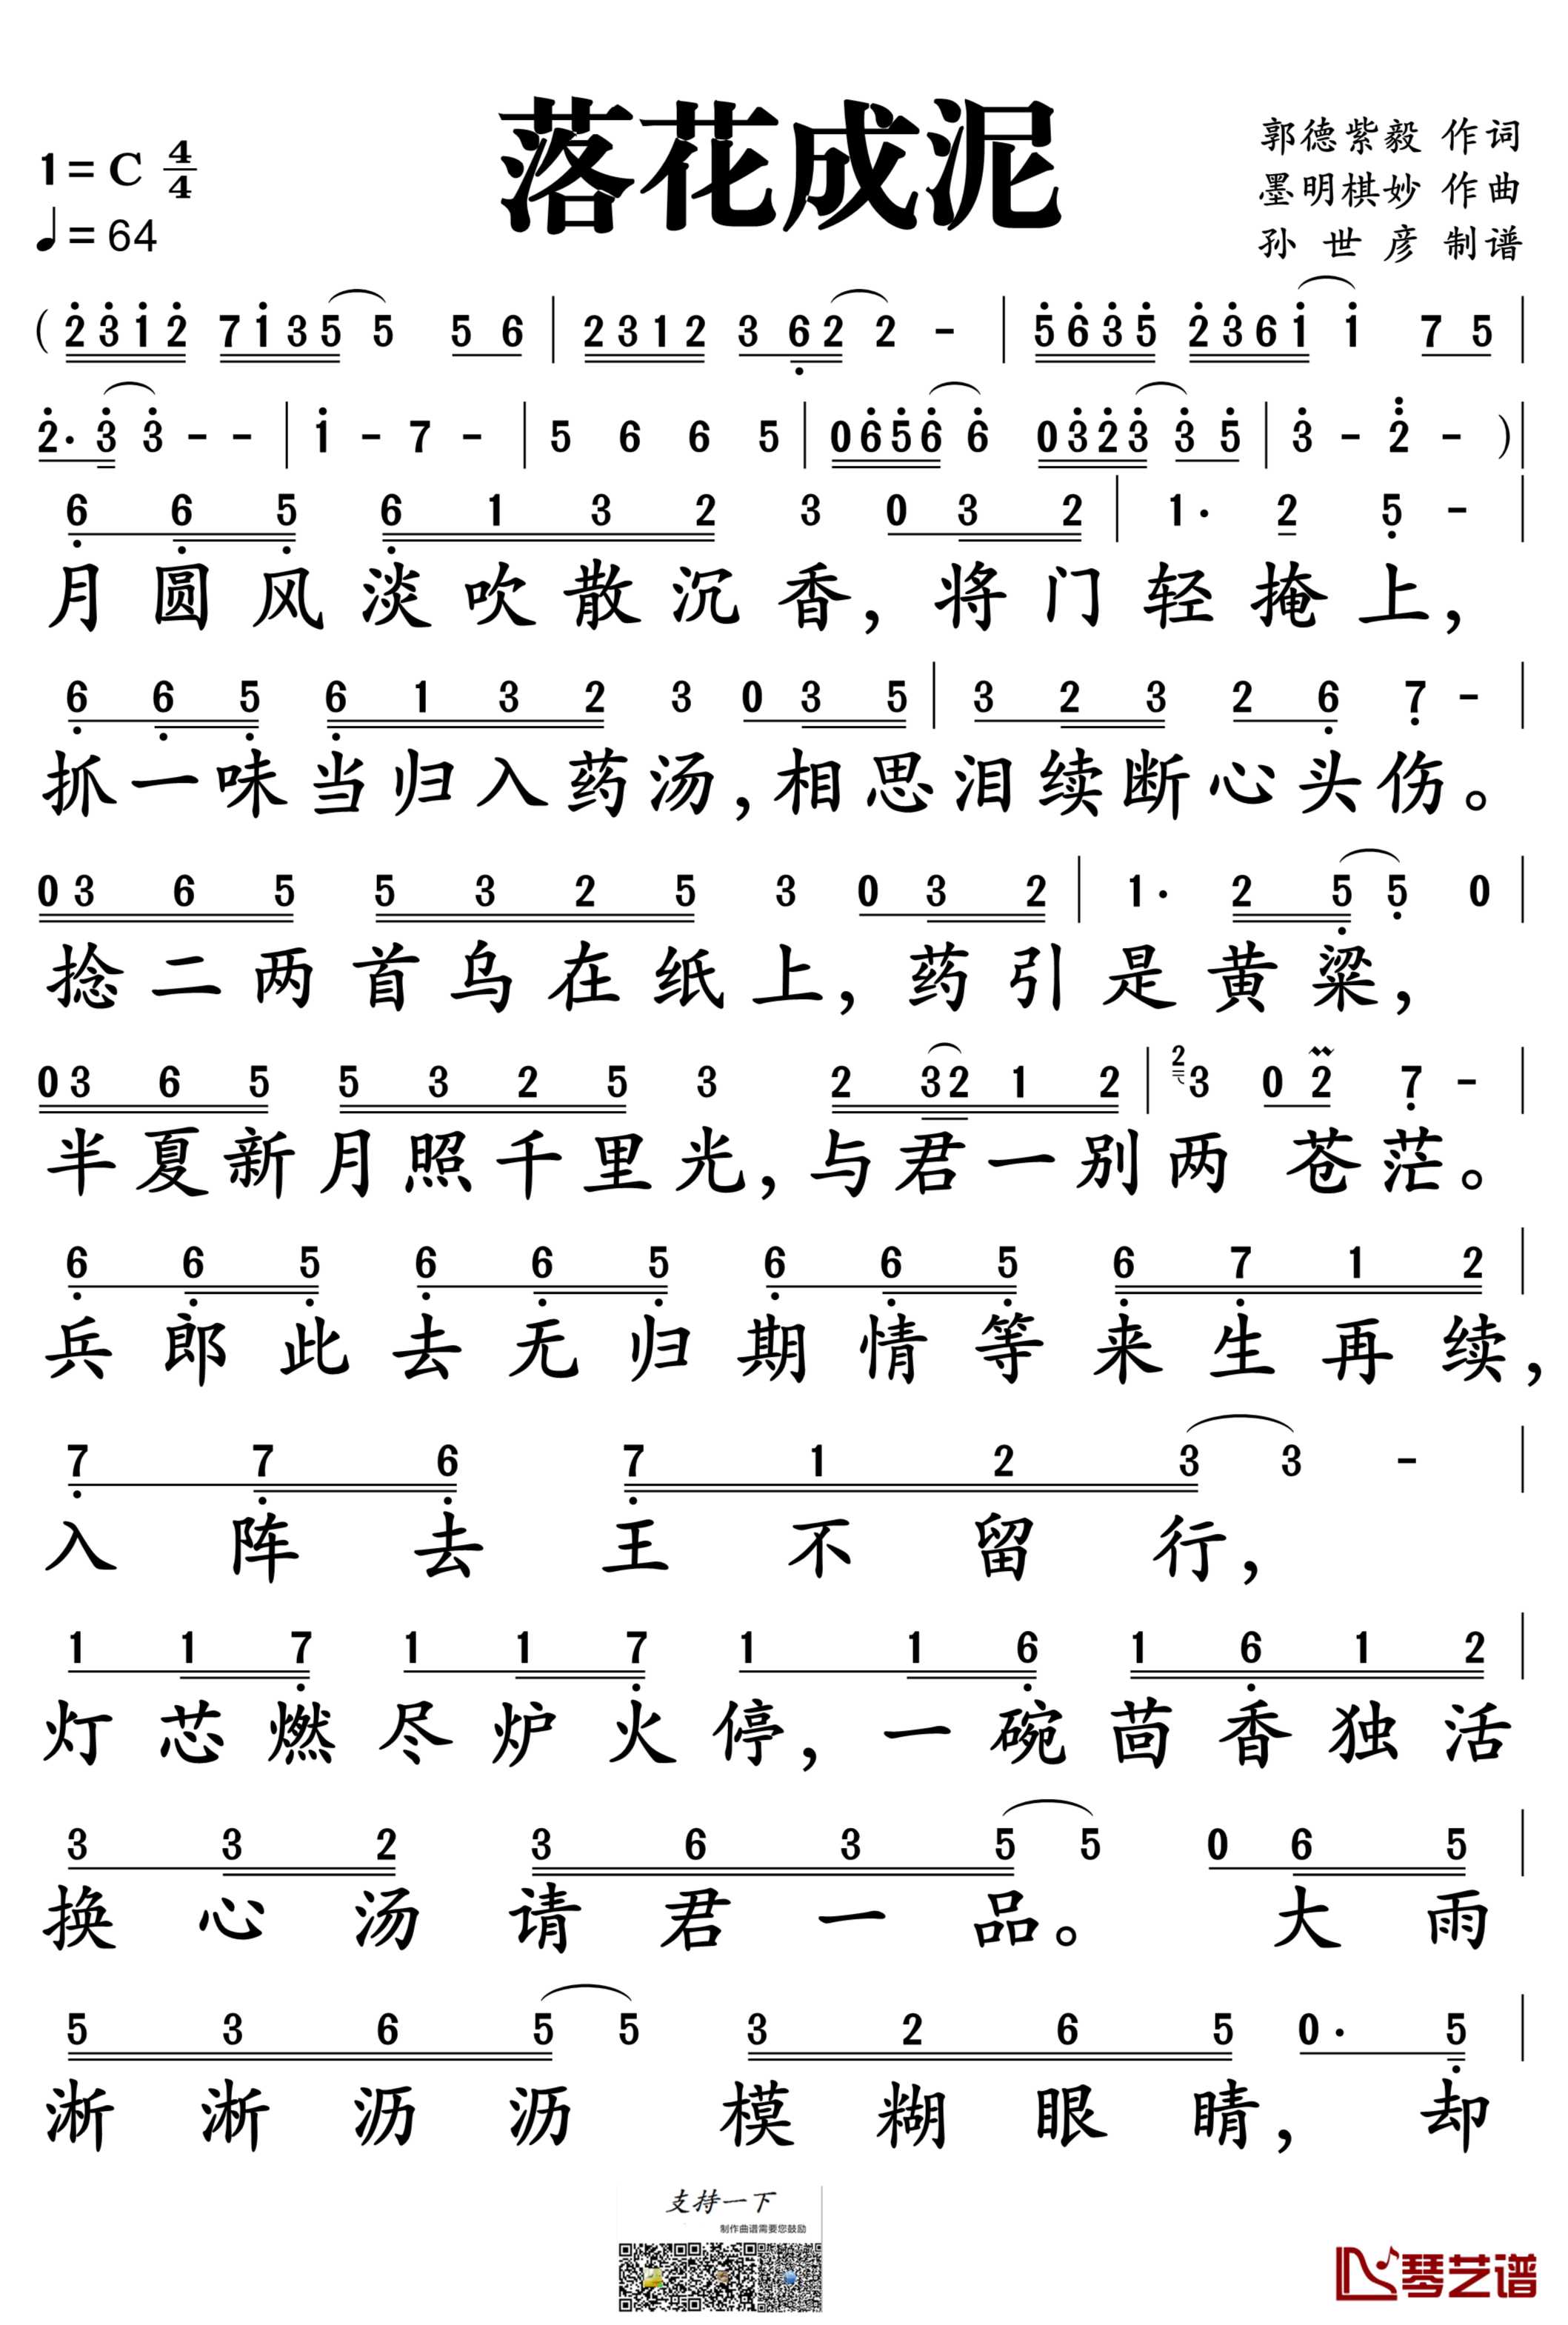 落花成泥
1=C 4/4
♩=64
郭德紫毅 作词
墨明棋妙 作曲
孙世彦 制谱
( 2 3 1 2 7 1 3 5 5 5 6 | 2 3 1 2 3 6 2 2 - | 5 6 3 5 2 3 6 1 1 7 5 |
2· 3 3 - - | 1 - 7 - | 5 6 6 5 | 0 6 5 6 6 0 3 2 3 3 5 | 3 - 2 - ) |
6 6 5 6 1 3 2 3 0 3 2 | 1· 2 5 - |
月圆风淡吹散沉香，将门轻掩上，
6 6 5 6 1 3 2 3 0 3 5 | 3 2 3 2 6 7 - |
抓一味当归入药汤，相思泪续断心头伤。
0 3 6 5 5 3 2 5 3 0 3 2 | 1· 2 5 5 0 |
捻二两首乌在纸上，药引是黄粱，
0 3 6 5 5 3 2 5 3 2 3 2 1 2 | 2 3 0 2 7 - |
半夏新月照千里光，与君一别两苍茫。
6 6 5 6 6 5 6 6 5 6 7 1 2 |
兵郎此去无归期情等来生再续，
7 7 6 7 1 2 3 3 - |
入阵去王不留行，
1 1 7 1 1 7 1 1 6 1 6 1 2 |
灯芯燃尽炉火停，一碗茴香独活
3 3 2 3 6 3 5 5 0 6 5 |
换心汤请君一品。大雨
5 3 6 5 5 3 2 6 5 0· 5 |
淅淅沥沥模糊眼睛，却
支持一下
制作曲谱需要您鼓励
琴艺谱